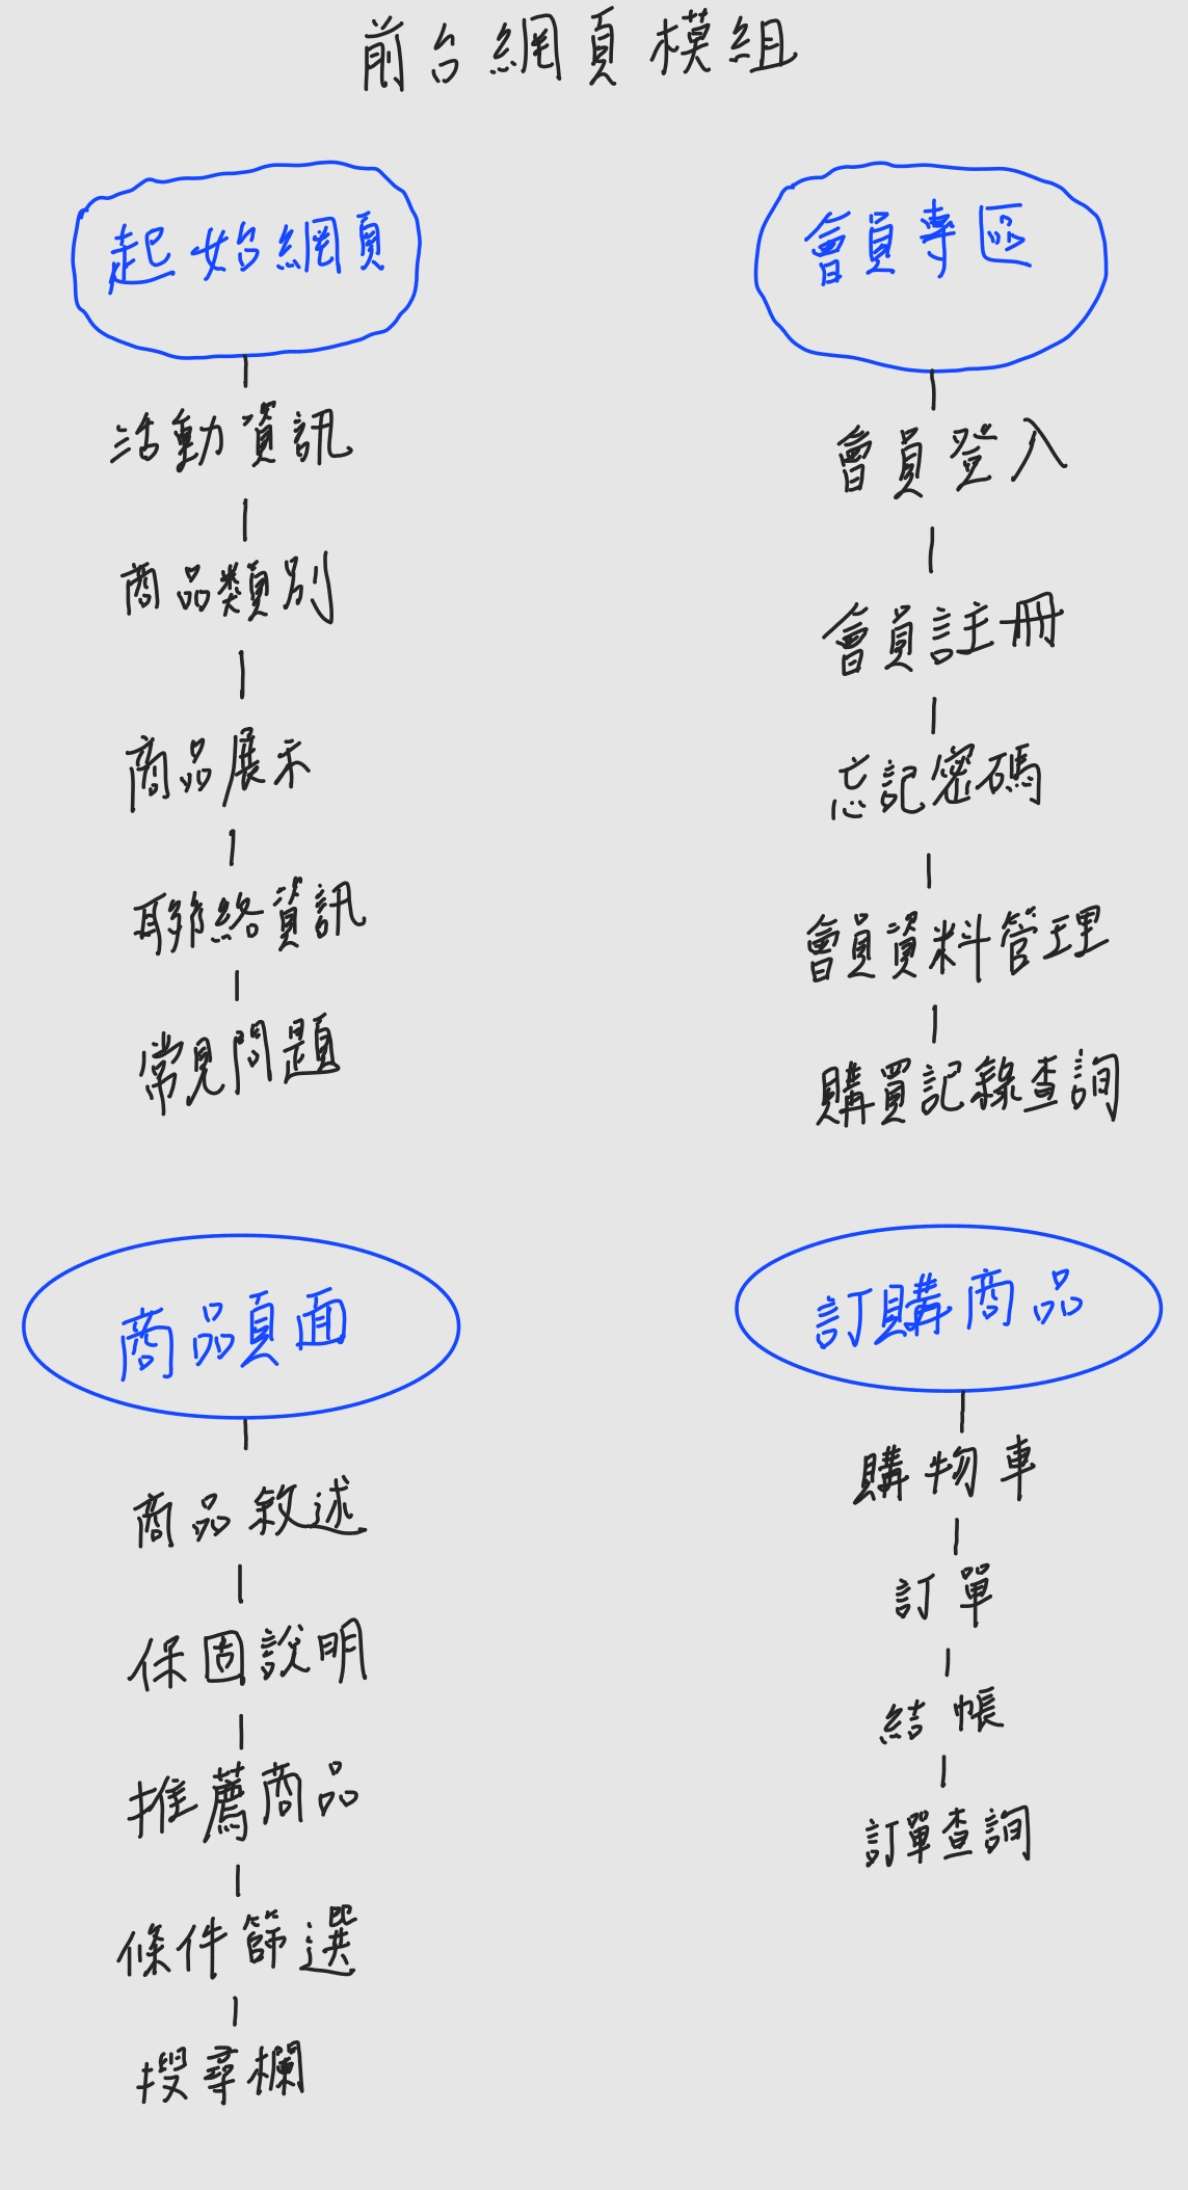 前台網頁模組
起始網頁
活動資訊
商品類別
商品展示
聯絡資訊
常見問題
會員專區
會員登入
會員註冊
忘記密碼
會員資料管理
購買記錄查詢
商品頁面
商品敘述
保固說明
推薦商品
條件篩選
搜尋欄
訂購商品
購物車
訂單
結帳
訂單查詢